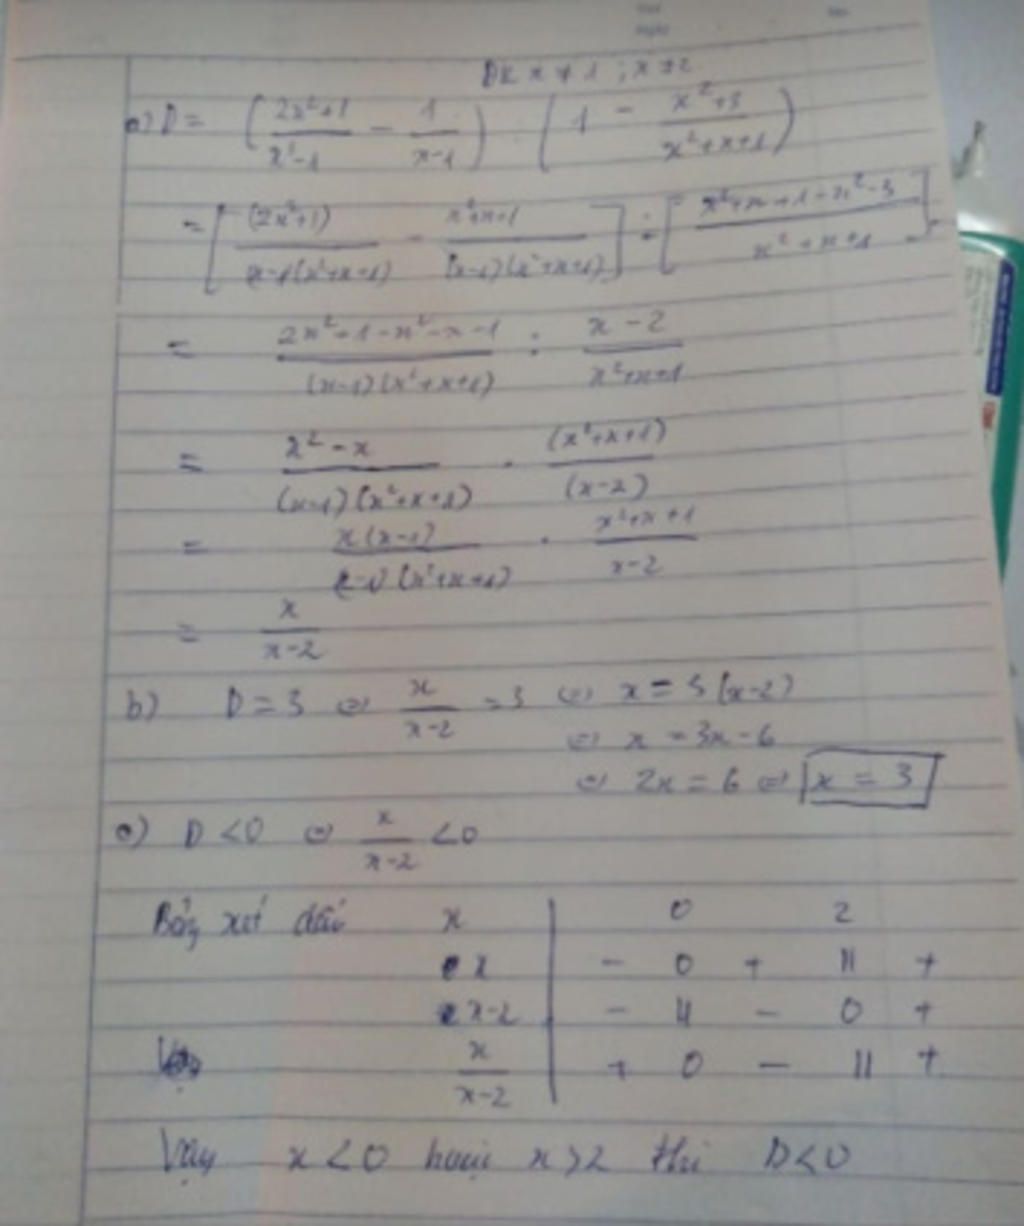 ĐK x ≠ 1 ; x ≠ 2
a) D = ( (2x²+1)/(x³-1) - 1/(x-1) ) : ( 1 - (x²+3)/(x²+x+1) )
= [ (2x²+1)/(x-1(x²+x+1)) - (x²+x+1)/((x-1)(x²+x+1)) ] : [ (x²+x+1-x²-3)/(x²+x+1) ]
= (2x²+1-x²-x-1)/((x-1)(x²+x+1)) : (x-2)/(x²+x+1)
= (x²-x)/((x-1)(x²+x+1)) . (x²+x+1)/(x-2)
= x(x-1)/((x-1)(x²+x+1)) . (x²+x+1)/(x-2)
= x/(x-2)
b) D = 3 ⇔ x/(x-2) = 3 ⇔ x = 3(x-2)
⇔ x = 3x-6
⇔ 2x = 6 ⇔ x = 3
c) D < 0 ⇔ x/(x-2) < 0
Bảng xét dấu x | 0 2
x | - 0 + || +
x-2 | - || - 0 +
x/(x-2) | + 0 - || +
Vậy x < 0 hoặc x > 2 thì D < 0